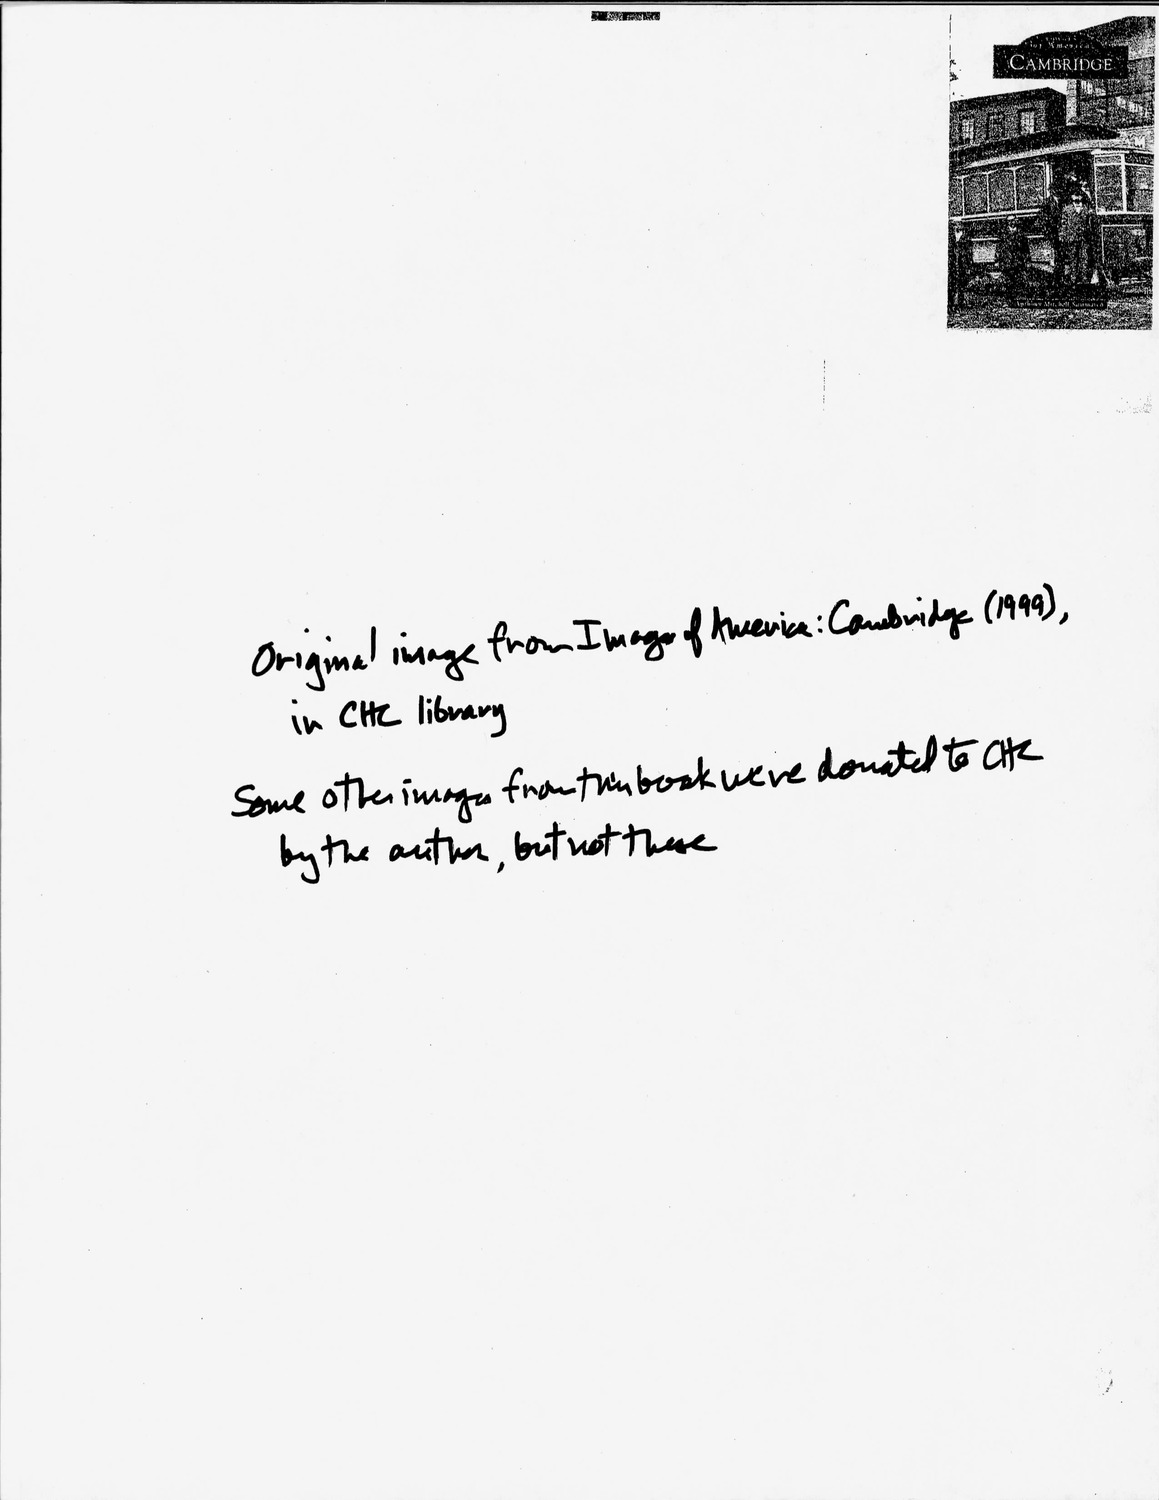 of America
CAMBRIDGE
Anthony Mitchell Sammarco
Original image from Images of America: Cambridge (1999),
in CHC library
Some other images from this book were donated to CHC
by the author, but not these